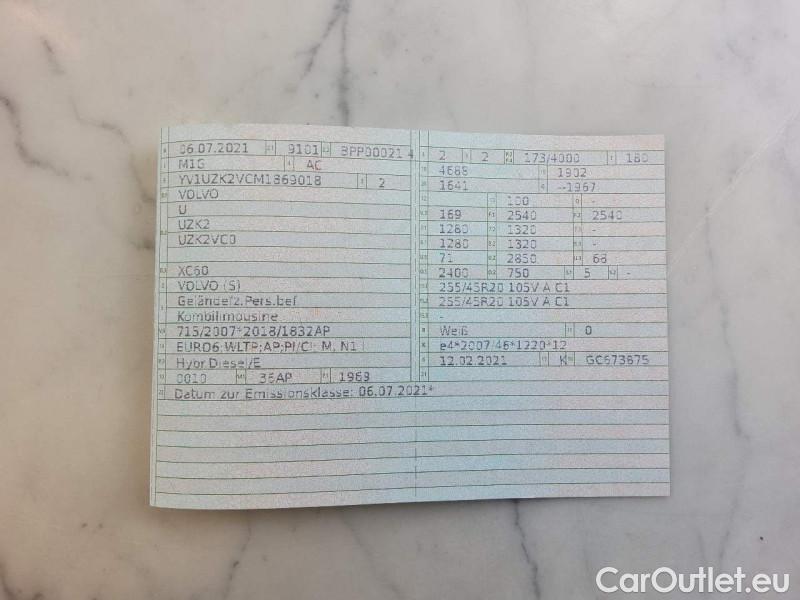 06.07.2021 9101 BPP00021 4
M1G AC
YV1UZK2VCM1869018 2
VOLVO
U
UZK2
UZK2VC0
XC60
VOLVO (S)
Geländefz.Pers.bef
Kombilimousine
715/2007*2018/1832AP
EURO6;WLTP;AP;PI/CI; M, N1 I
Hybr.Diesel/E
0010 36AP 1969
Datum zur Emissionsklasse: 06.07.2021*
2 2 173/4000 180
4688 1902
1641 --1967
100 -
169 2540 2540
1280 1320 -
1280 1320 -
71 2850 68
2400 750 5 -
255/45R20 105V A C1
255/45R20 105V A C1
-
Weiß 0
e4*2007/46*1220*12
12.02.2021 K GC673675
CarOutlet.eu